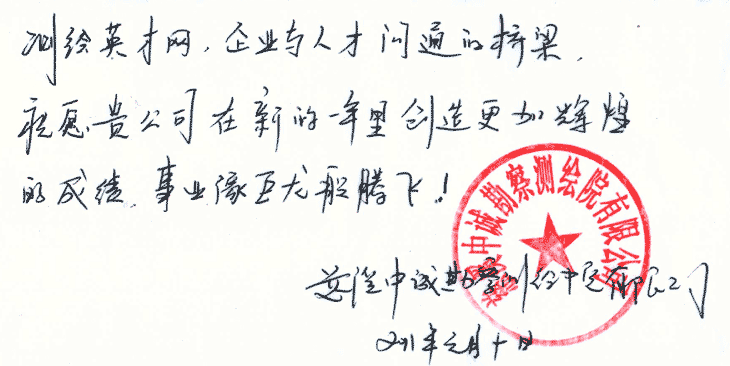 测绘英才网，企业与人才沟通的桥梁，
祝愿贵公司在新的一年里创造更加辉煌
的成绩，事业像巨龙般腾飞！
慈溪中诚勘察测绘院有限公司
2011年元月十日
慈溪中诚勘察测绘院有限公司